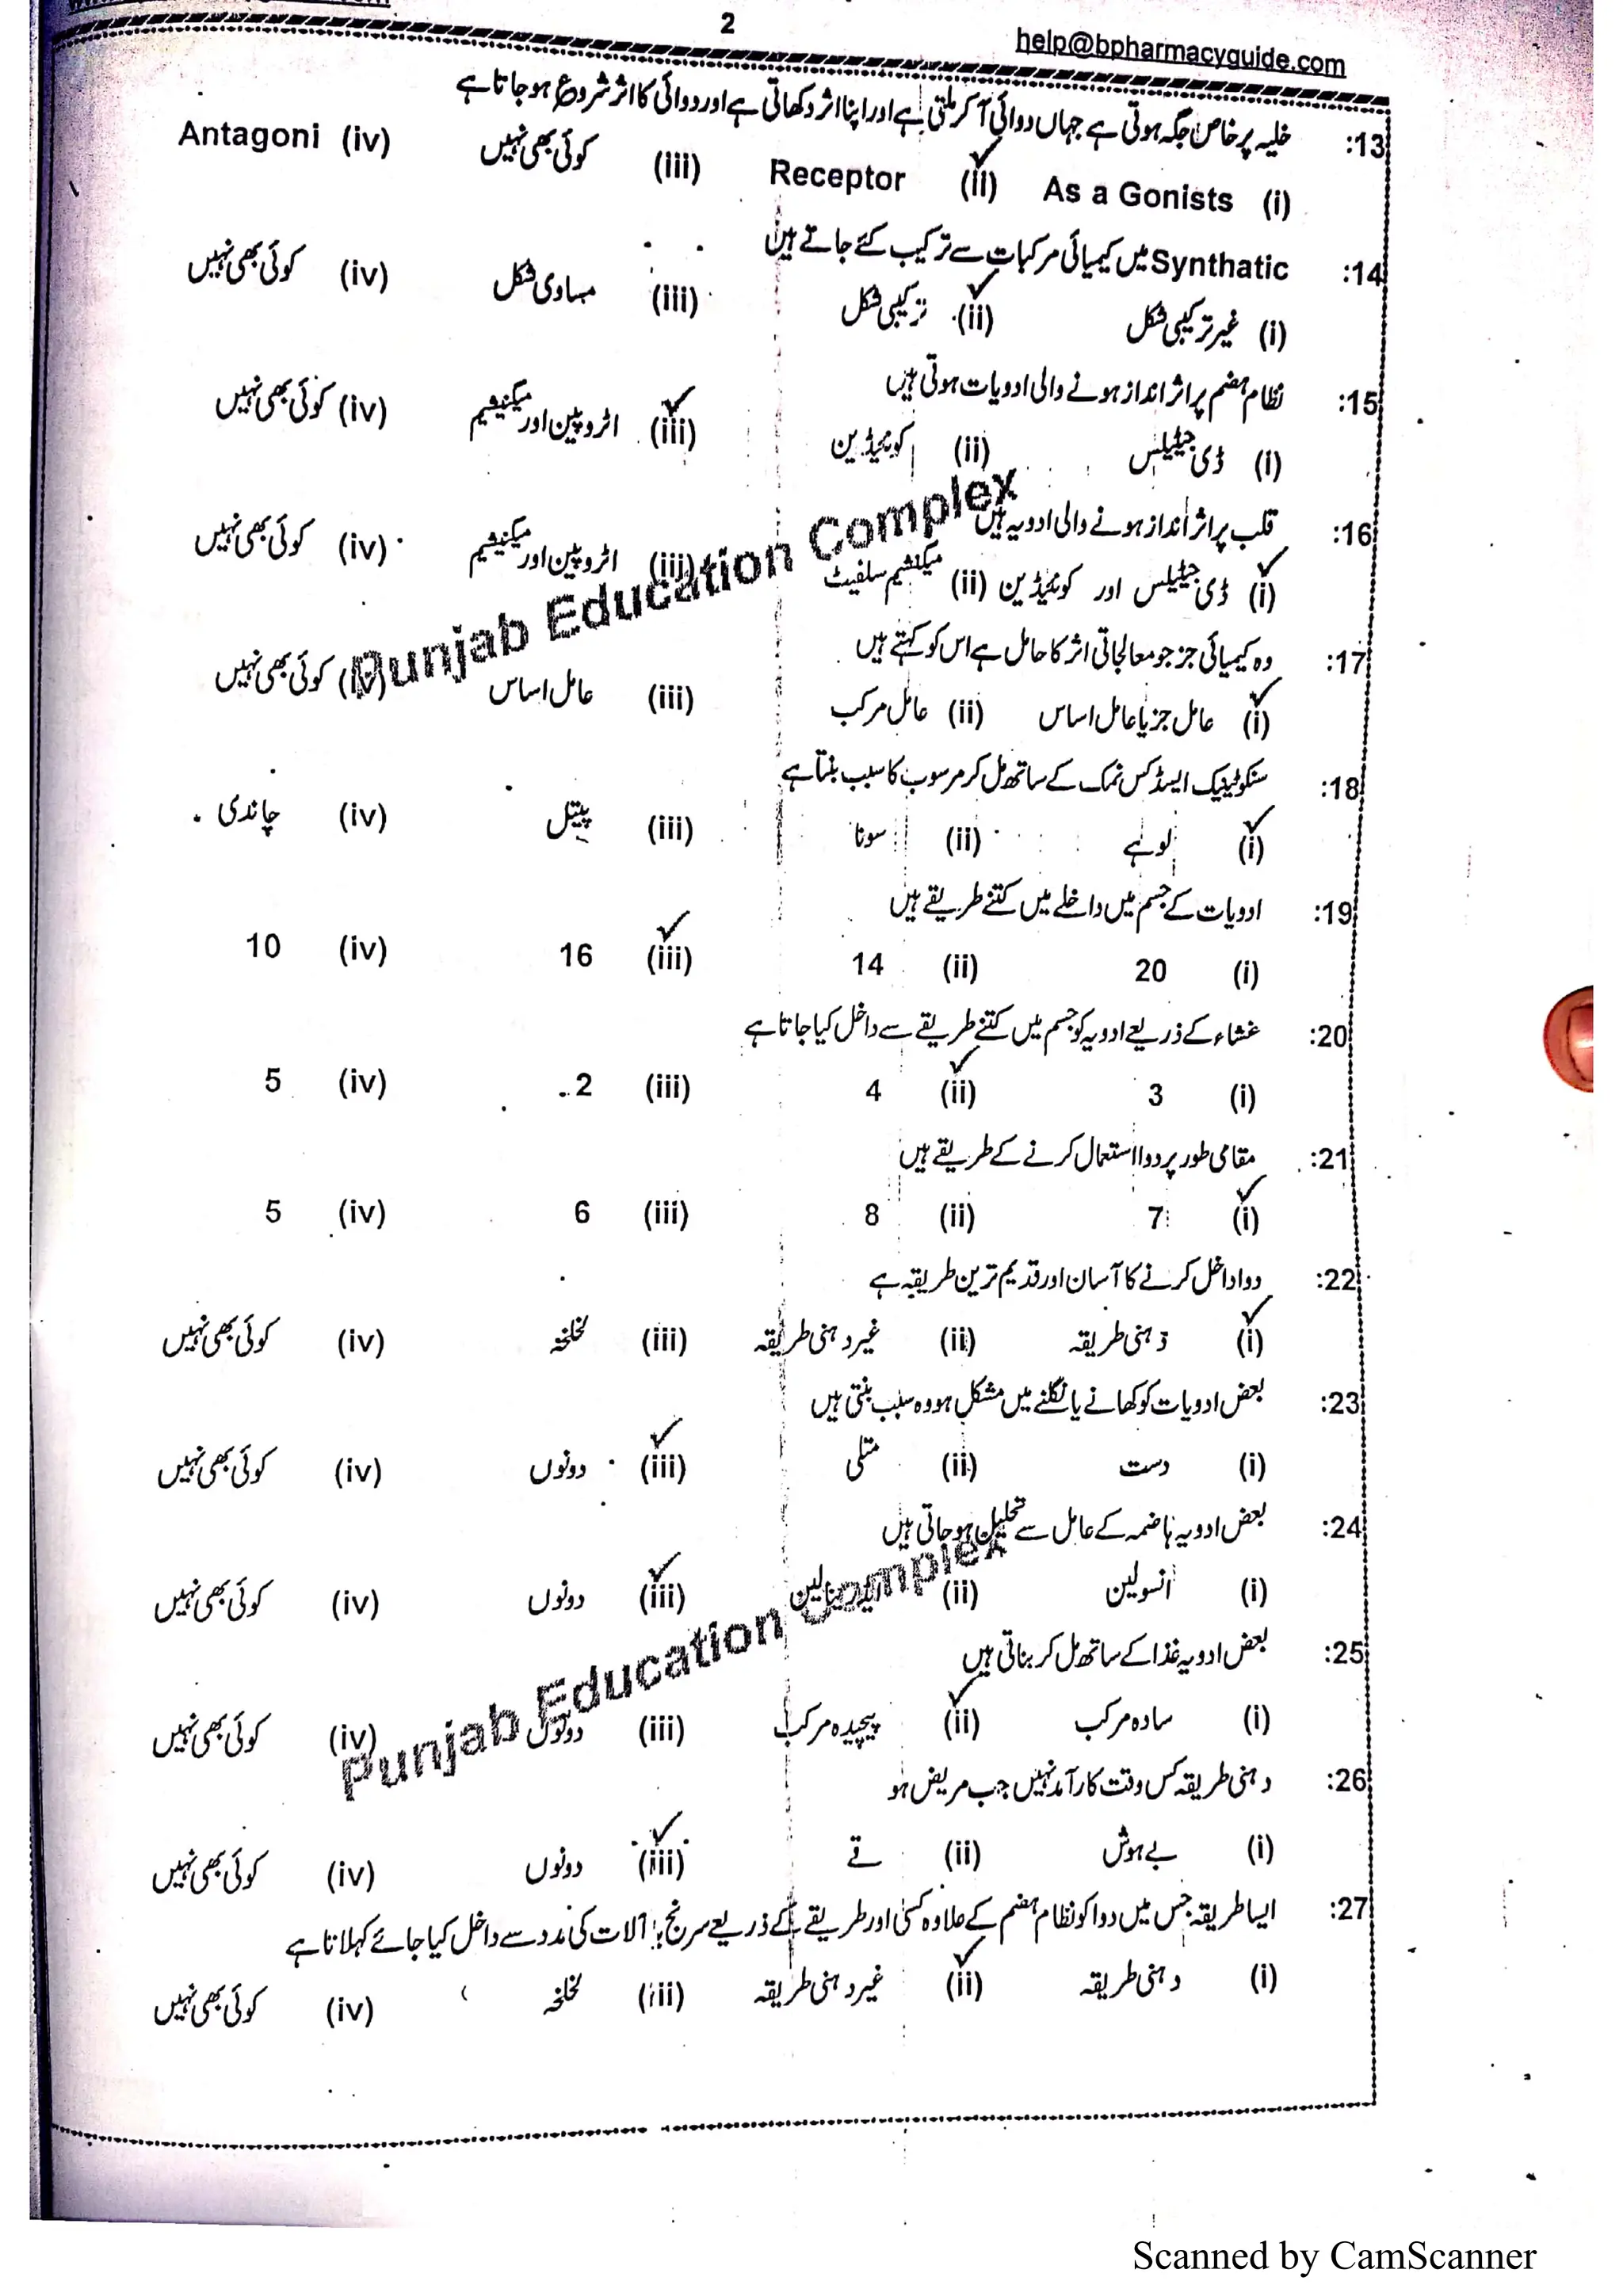 2
help@bpharmacyguide.com
13: خلیہ پر خاص جگہ ہوتی ہے جہاں دوائی آ کر ملتی ہے اور اپنا اثر دکھاتی ہے اور دوائی کا اثر شروع ہو جاتا ہے
(i) As a Gonists (ii) Receptor (iii) کوئی بھی نہیں (iv) Antagoni
14: Synthatic میں کیمیائی مرکبات سے ترکیب کئے جاتے ہیں
(i) غیر ترکیبی شکل (ii) ترکیبی شکل (iii) مساوی شکل (iv) کوئی بھی نہیں
15: نظام ہضم پر اثر انداز ہونے والی ادویات ہوتی ہیں
(i) ڈی جیٹیلس (ii) کونیڈین (iii) اٹروپین اور میگنیشیم (iv) کوئی بھی نہیں
16: قلب پر اثر انداز ہونے والی ادویہ ہیں
(i) ڈی جیٹیلس اور کونیڈین (ii) میگنیشیم سلفیٹ (iii) اٹروپین اور میگنیشیم (iv) کوئی بھی نہیں
17: وہ کیمیائی جز جو معالجاتی اثر کا حامل ہے اس کو کہتے ہیں
(i) عامل جز یا عامل اساس (ii) عامل مرکب (iii) عامل اساس (iv) کوئی بھی نہیں
18: ایسڈ کس نمک کے ساتھ مل کر مرسوب کا سبب بنتا ہے
(i) لوہے (ii) سونا (iii) پیتل (iv) چاندی
19: ادویات کے جسم میں داخلے میں کتنے طریقے ہیں
(i) 20 (ii) 14 (iii) 16 (iv) 10
20: غشاء کے ذریعے ادویہ کو جسم میں کتنے طریقے سے داخل کیا جاتا ہے
(i) 3 (ii) 4 (iii) 2 (iv) 5
21: مقامی طور پر دوا استعمال کرنے کے طریقے ہیں
(i) 7 (ii) 8 (iii) 6 (iv) 5
22: دوا داخل کرنے کا آسان اور قدیم ترین طریقہ ہے
(i) ذہنی طریقہ (ii) غیر دہنی طریقہ (iii) لخلخہ (iv) کوئی بھی نہیں
23: بعض ادویات کو کھانے یا نگلنے میں مشکل ہو وہ سبب بنتی ہیں
(i) دست (ii) متلی (iii) دونوں (iv) کوئی بھی نہیں
24: بعض ادویہ ہاضمہ کے عامل سے تحلیل ہو جاتی ہیں
(i) انسولین (ii) (iii) دونوں (iv) کوئی بھی نہیں
25: بعض ادویہ غذا کے ساتھ مل کر بناتی ہیں
(i) سادہ مرکب (ii) پیچیدہ مرکب (iii) دونوں (iv) کوئی بھی نہیں
26: دہنی طریقہ کس وقت کارآمد نہیں جب مریض ہو
(i) بے ہوش (ii) قے (iii) دونوں (iv) کوئی بھی نہیں
27: ایسا طریقہ جس میں دوا کو نظام ہضم کے علاوہ کسی اور طریقے کے ذریعے سرنج یا آلات کی مدد سے داخل کیا جائے کہلاتا ہے
(i) دہنی طریقہ (ii) غیر دہنی طریقہ (iii) لخلخہ (iv) کوئی بھی نہیں
Punjab Education Complex
Punjab Education Complex
Scanned by CamScanner